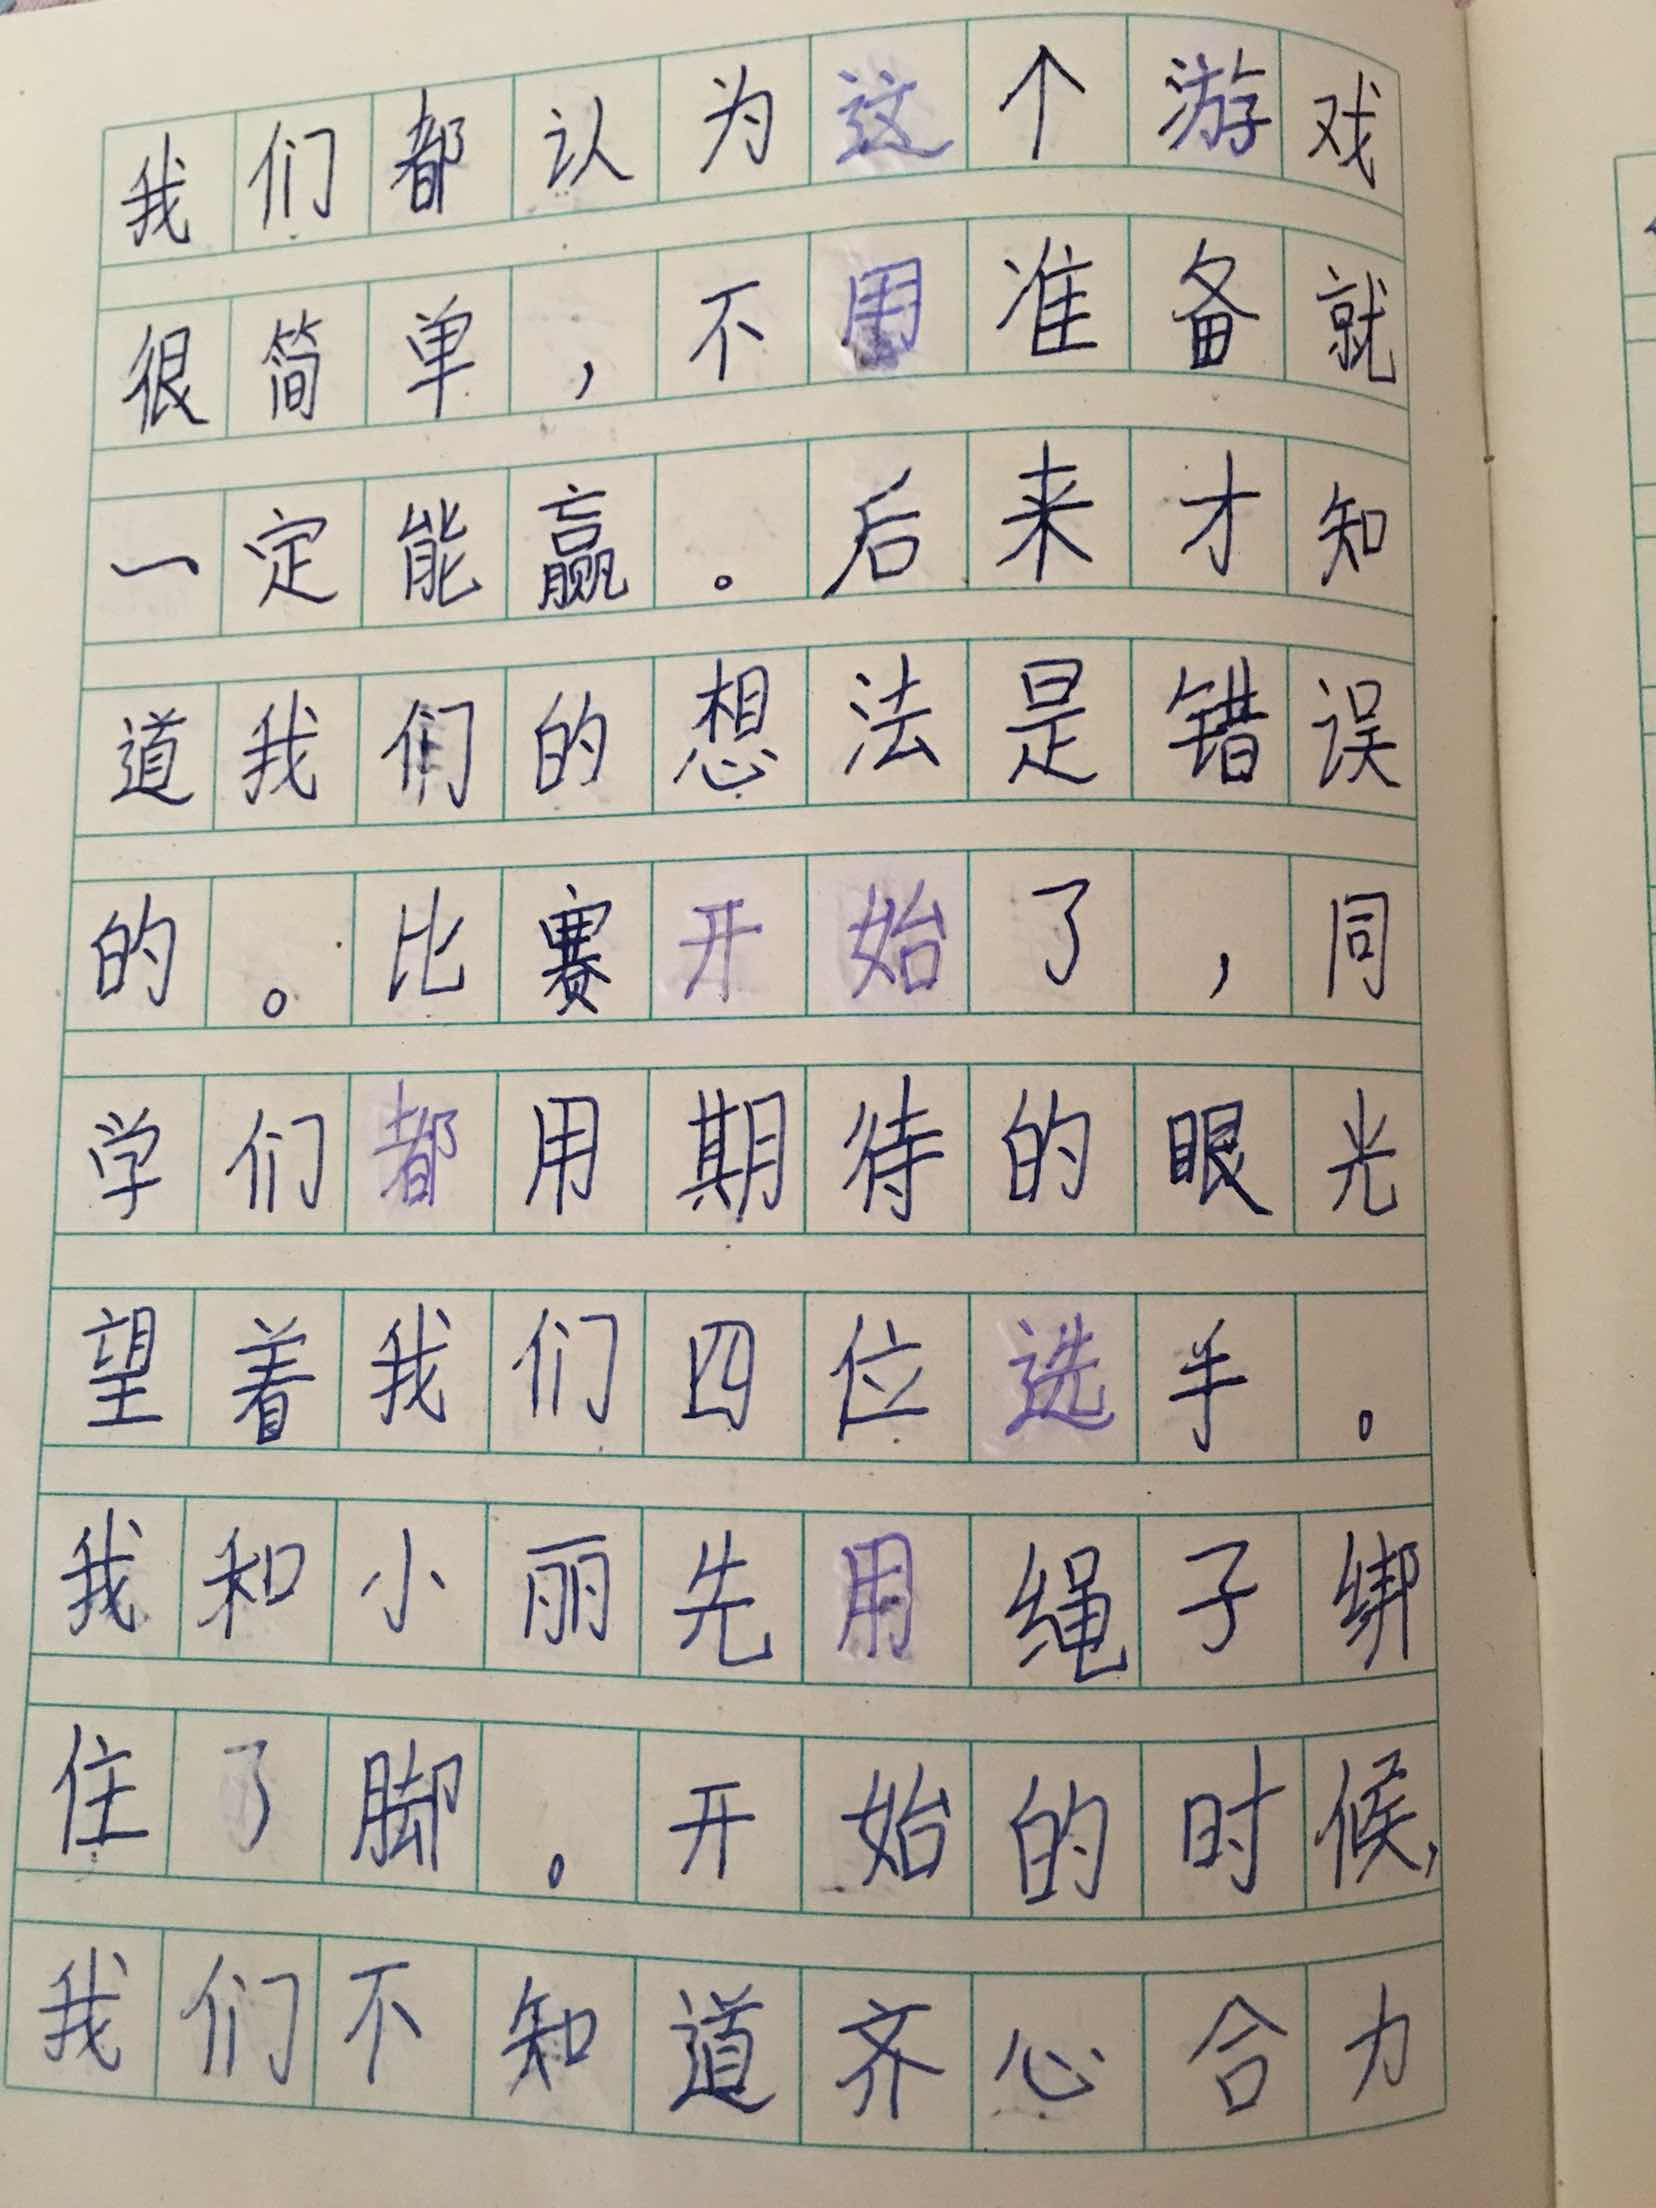 我们都认为这个游戏
很简单，不用准备就
一定能赢。后来才知
道我们的想法是错误
的。比赛开始了，同
学们都用期待的眼光
望着我们四位选手。
我和小丽先用绳子绑
住了脚。开始的时候，
我们不知道齐心合力